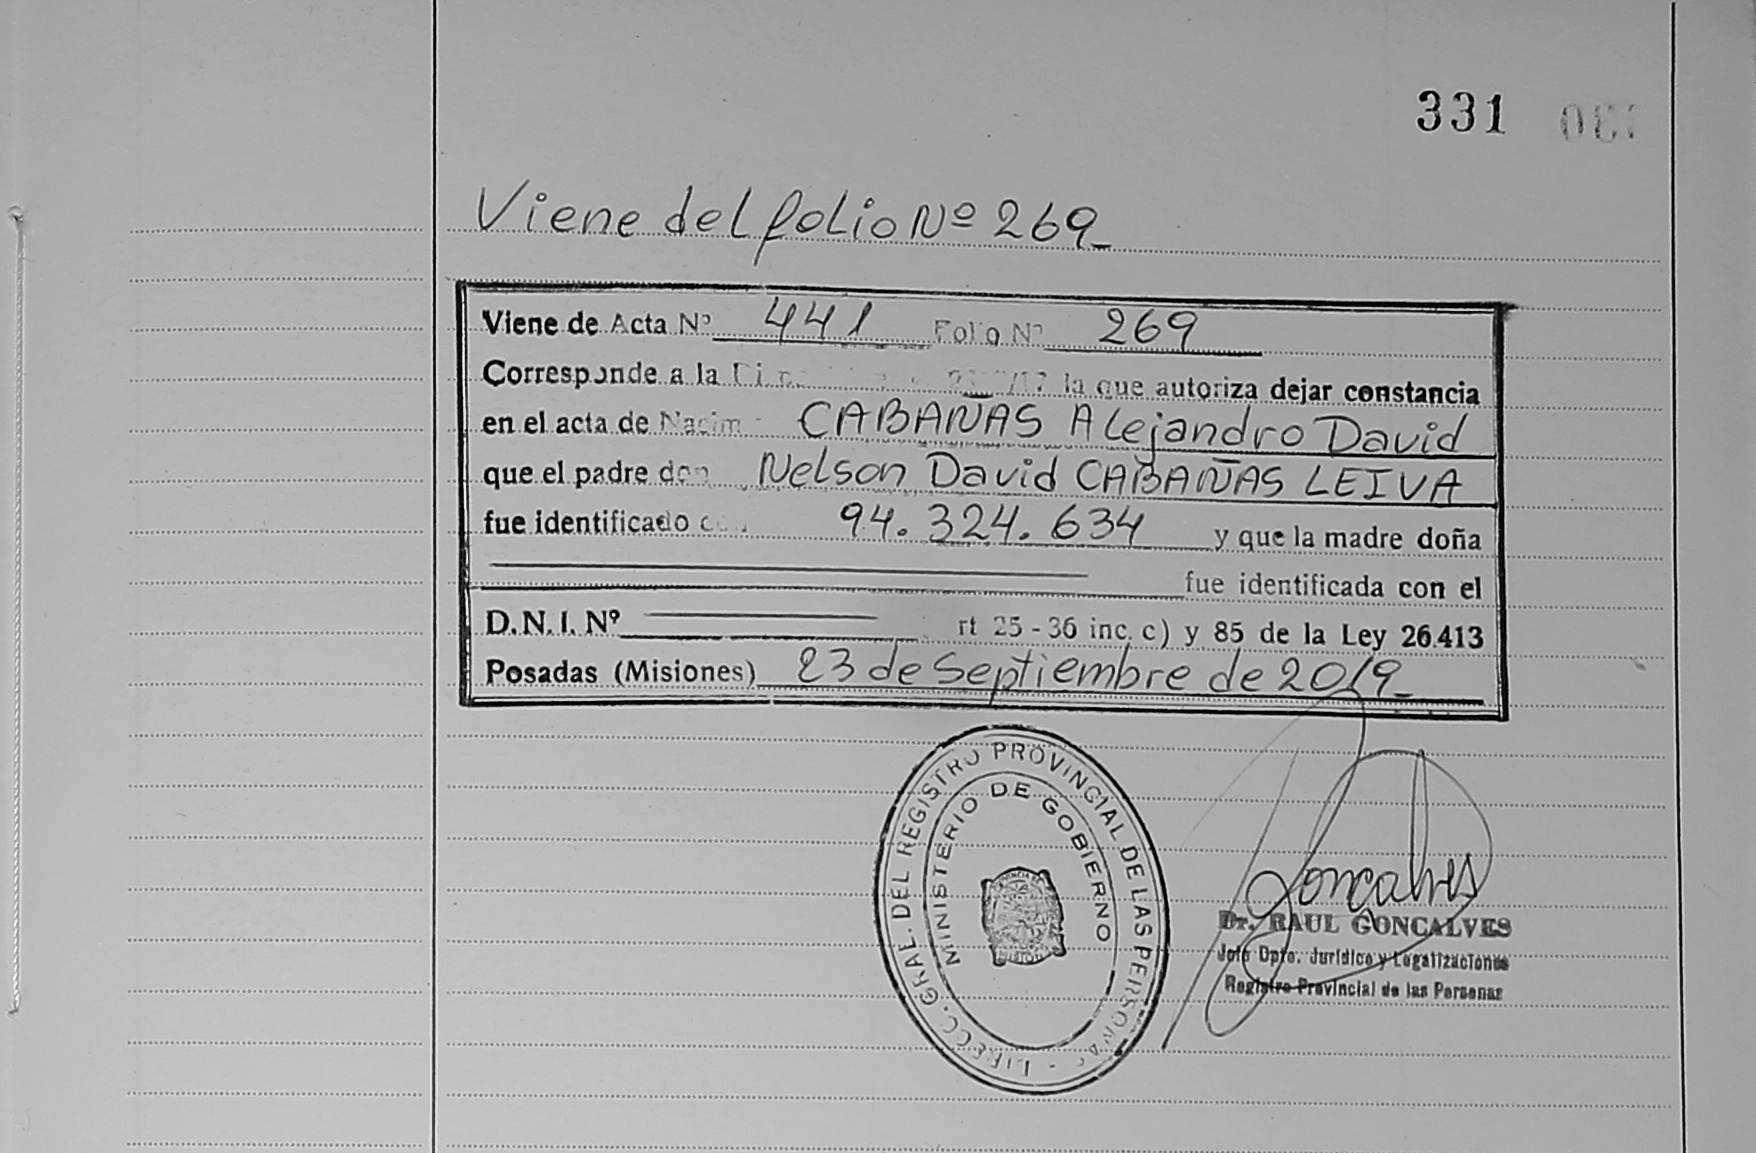 331
Viene del folio Nº 269_
Viene de Acta Nº 441 Folio Nº 269
Corresponde a la /17 la que autoriza dejar constancia
en el acta de Nacim CABAÑAS Alejandro David
que el padre don Nelson David CABAÑAS LEIVA
fue identificado 94.324.634 y que la madre doña
fue identificada con el
D.N.I. Nº rt 25 - 36 inc. c) y 85 de la Ley 26.413
Posadas (Misiones) 23 de Septiembre de 2019_
GRAL. DEL REGISTRO PROVINCIAL DE LAS PERSONAS
MINISTERIO DE GOBIERNO
Goncalves
Dr. RAUL GONCALVES
Jefe Dpto. Jurídico y Legalizaciones
Registro Provincial de las Personas